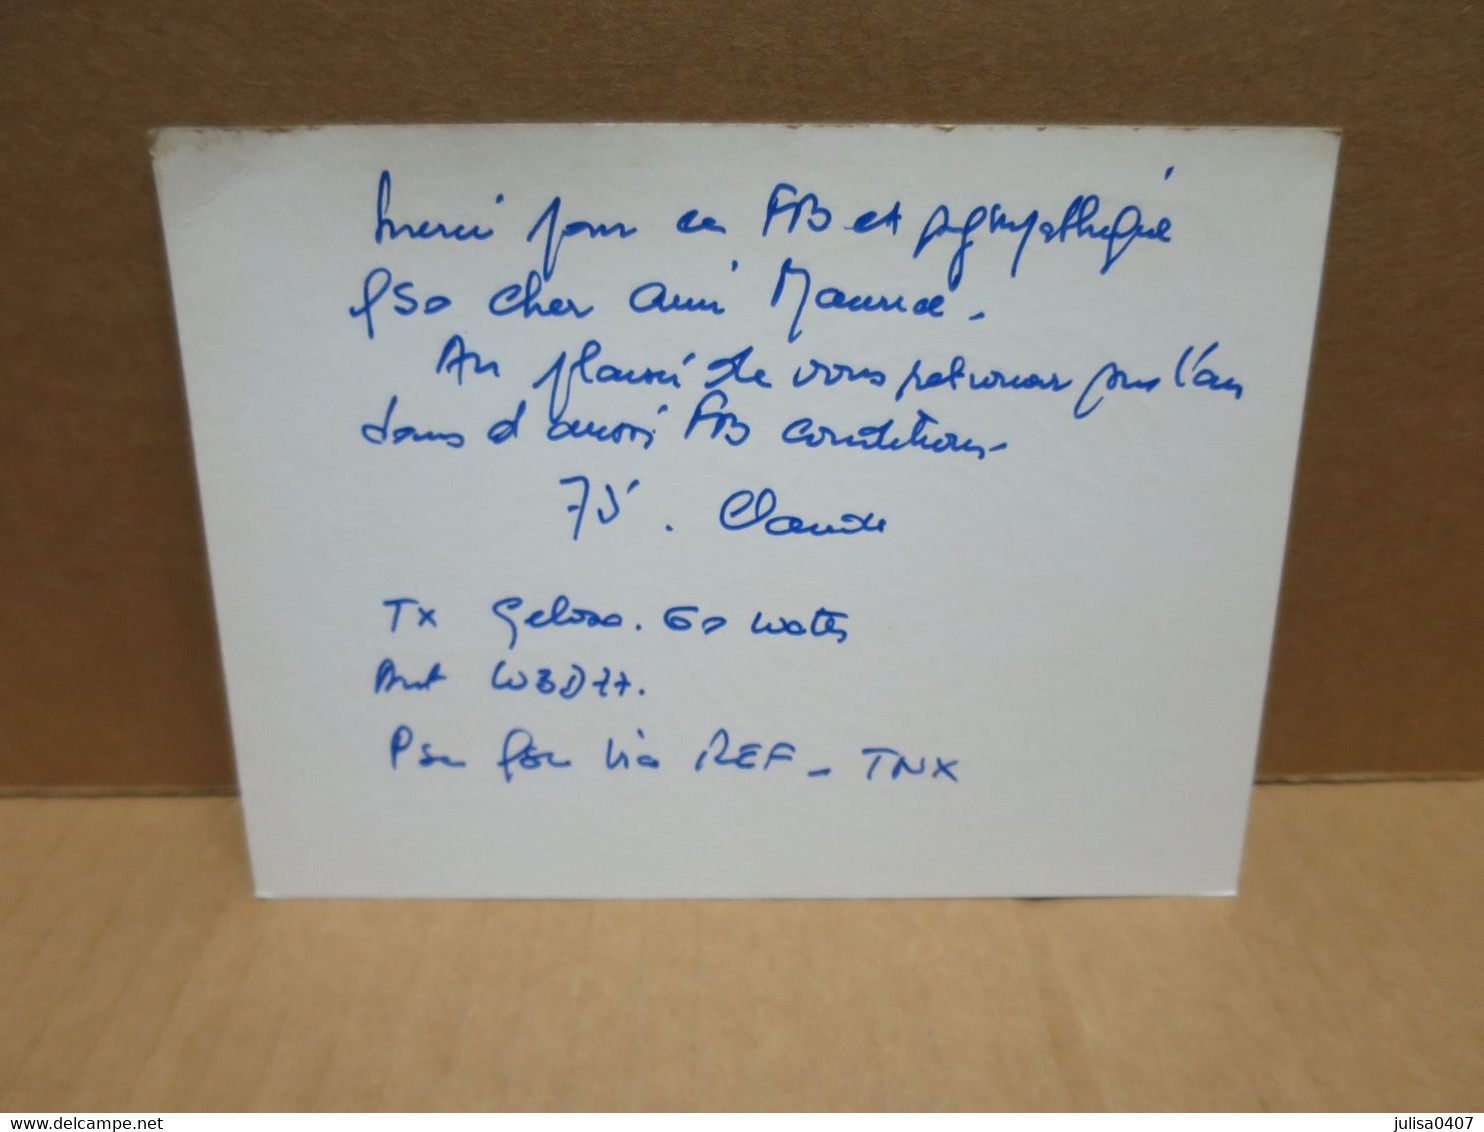 Merci pour ce FB et sympathique
QSO cher ami Maurice.
Au plaisir de vous retrouver sur l'air
dans d'aussi FB conditions.
73'. Claude
TX Geloso. 60 watts
Ant W3DZZ.
Pse QSL via REF - TNX
delcampe.net
julisa0407